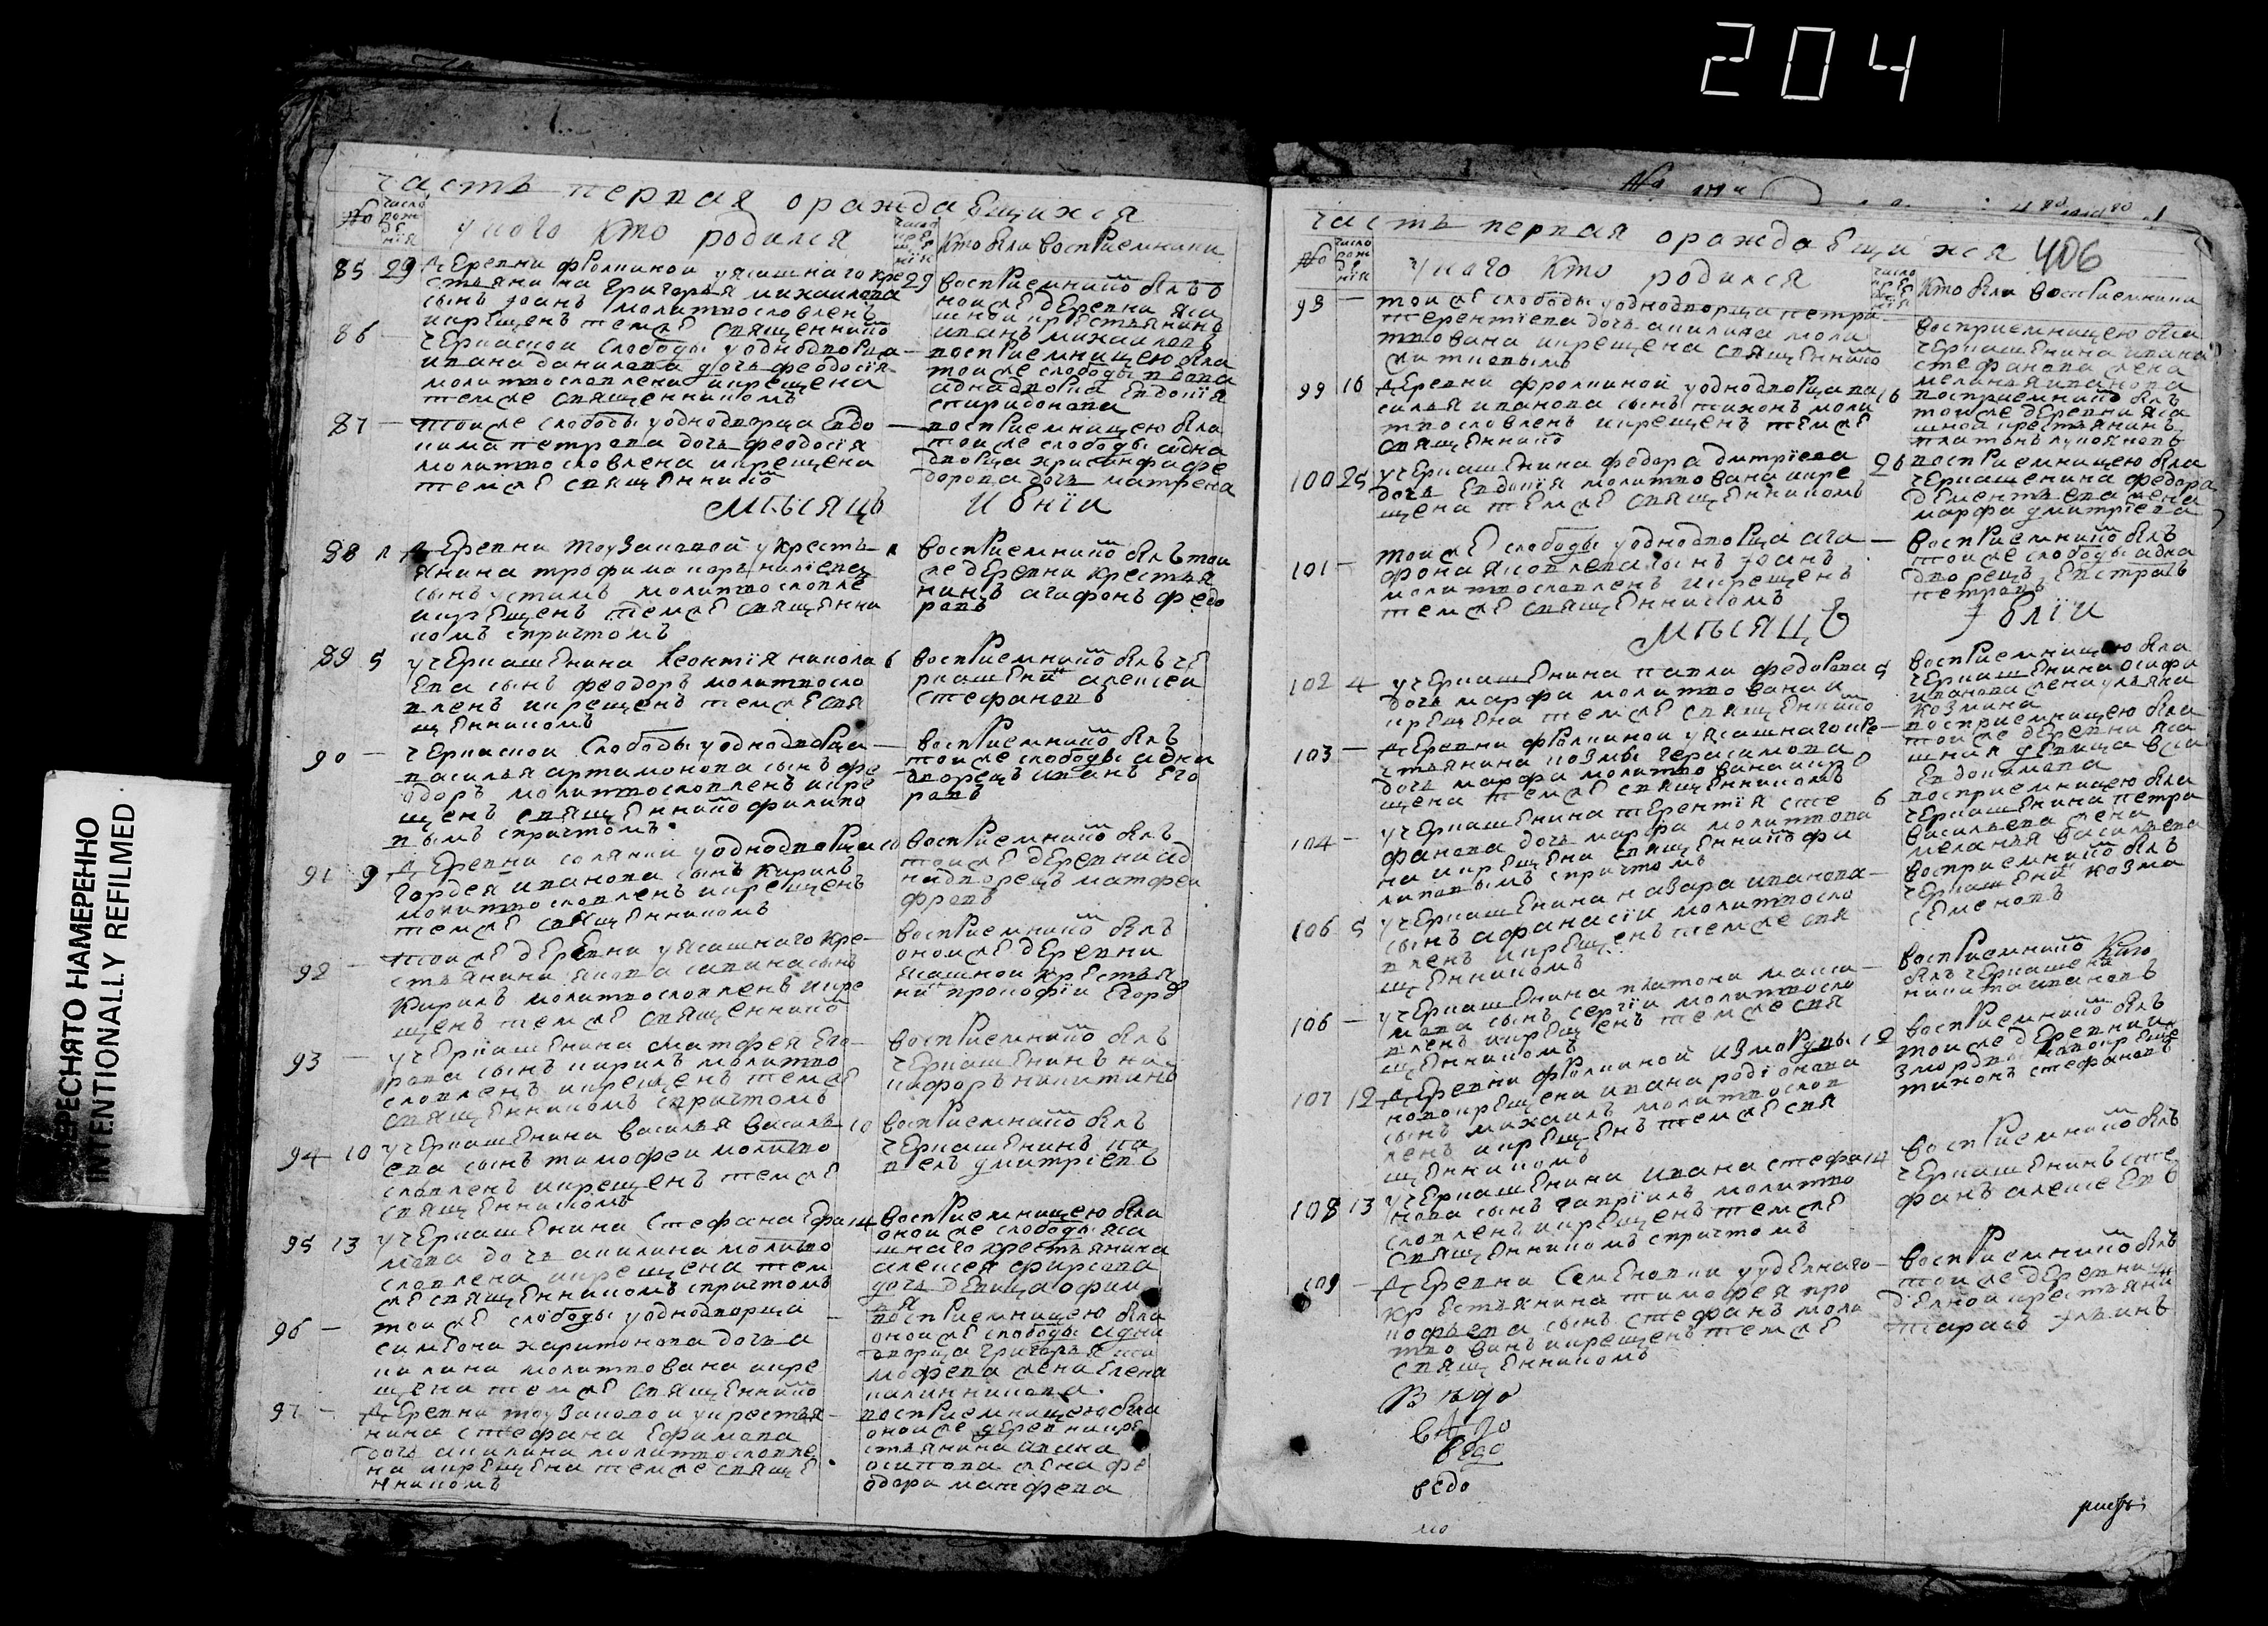 204
часть первая о раждающихся
№ число рождения у кого кто родился число крещения кто был восприемники
85 29 деревни фролкиной у ясашнаго кре
стьянина григорья михаилова
сынъ иоанъ молитвословленъ
и крещенъ темже священнико
29 восприемнико былъ о
ной же деревни яса
шной крестьянинъ
иванъ михаиловъ
86 — черкаской слободы у однодворца
ивана данилова дочь феодосия
молитвословлена и крещена
темже священникомъ
— восприемницею была
той же слободы вдова
аднадворка евдокия
спиридонова
87 — той же слободы у однодворца евдо
кима петрова дочь феодосия
молитвословлена и крещена
темже священнико
— восприемницею была
той же слободы адна
дворца хрисанфа фе
дорова дочь матрена
мѣсяцъ июнии
88 деревни тоузаковой у кресть
янина трофима
сынъ устимъ молитвословле
и крещенъ темже священни
комъ с притчомъ
восприемнико былъ той
же деревни крестья
нинъ агафонъ федо
ровъ
89 5 у черкашенина леонтия никола
ева сынъ феодоръ молитвосло
вленъ и крещенъ темже свя
щенникомъ
6 восприемнико былъ че
ркашени алексеи
стефановъ
90 — черкаской слободы у однодворца
василья артамонова сынъ фе
одоръ молитвословленъ и кре
щенъ священнико филипо
вымъ с притчомъ
— восприемнико былъ
той же слободы адна
дворецъ иванъ его
ровъ
91 9 деревни у однодворца
гордея иванова сынъ кирилъ
молитвословленъ и крещенъ
темже священникомъ
10 восприемнико былъ
той же деревни ад
надворецъ матфеи
92 — той же деревни у ясашнаго кре
стьянина якова савина сынъ
кирилъ молитвословленъ и кре
щенъ темже священнико
восприемнико былъ
оной же деревни
ясашной крестья
ни прокофии егоро
93 — у черкашенина матфея его
рова сынъ кирилъ молитво
словленъ и крещенъ темже
священникомъ с притчомъ
восприемнико былъ
черкашенинъ ни
кифоръ никитинъ
94 10 у черкашенина василья василь
ева сынъ тимофеи молитво
словленъ и крещенъ темже
священникомъ
10 восприемнико былъ
черкашенинъ па
велъ дмитриевъ
95 13 у черкашенина стефана ефи
мова дочь акилина молитво
словлена и крещена тем
же священникомъ с притчомъ
14 восприемницею была
оной же слободы яса
шнаго крестьянина
алексея фирсова
дочь девица офим
ия
96 — той же слободы у однодворца
симеона харитонова дочь а
килина молитвована и кре
щена темже священнико
— восприемницею была
оной же слободы адна
дворца григорья ти
мофева жена елена
калинникова
97 — деревни тоузаковой у крестья
нина стефана ефимова
дочь акилина молитвословле
на и крещена темже свяще
нникомъ
— восприемницею была
оной же деревни кре
стьянина ивана
осипова жена фе
одора матфева
часть первая о раждающихся 406
№ число рождения у кого кто родился число крещения кто был восприемники
98 — той же слободы у однодворца петра
терентиева дочь акилина моли
твована и крещена священнико
никитиевымъ
восприемницею была
черкашенина ивана
стефанова жена
меланья иванова
99 16 деревни фролкиной у однодворца ва
силья иванова сынъ тихонъ моли
твословленъ и крещенъ темже
священнико
16 восприемнико былъ
той же деревни яса
шной крестьянинъ
платонъ лукояновъ
100 25 у черкашенина федора дмтриева
дочь евдокия молитвована и кре
щена темже священникомъ
26 восприемницею была
черкашенина федора
дементьева жена
марфа дмитриева
101 — той же слободы у однодворца ага
фона яковлева сынъ иоанъ
молитвословленъ и крещенъ
темже священникомъ
— восприемнико былъ
той же слободы адна
дворецъ евстратъ
петровъ
мѣсяцъ иулии
102 4 у черкашенина павла федорова
дочь марфа молитвована и
крещена темже священнико
5 восприемницею была
черкашенина осифа
иванова жена ульяна
козмина
103 — деревни фролкиной у ясашнаго кре
стьянина козмы герасимова
дочь марфа молитвована и кр
щена темже священникомъ
— восприемницею была
той же деревни яса
шная девица васа
евдокимова
104 — у черкашенина терентия сте
фанова дочь марфа молитвова
на и крещена священнико фи
липовымъ с притчомъ
6 восприемницею была
черкашенина петра
васильева жена
меланья васильева
106 5 у черкашенина назара иванова
сынъ афанасии молитвосло
вленъ и крещенъ темже свя
щенникомъ
— восприемнико былъ
черкашени козма
семеновъ
106 — у черкашенина платона макси
мова сынъ сергии молитвосло
вленъ и крещенъ темже свя
щенникомъ
— восприемнико
былъ черкашени
никита ивановъ
107 12 деревни фролкиной и змордвы
новокрещена ивана родионова
сынъ михаилъ молитвослов
ленъ и крещенъ темже свя
щенникомъ
12 восприемнико былъ
той же деревни и
змордвы новокреще
тихонъ стефановъ
108 13 у черкашенина ивана стефа
нова сынъ гавриилъ молитво
словленъ и крещенъ темже
священникомъ с притчомъ
14 восприемнико былъ
черкашенинъ сте
фанъ алексеевъ
109 — деревни семеновки у удельнаго
крестьянина тимофея про
кофьева сынъ стефанъ моли
твованъ и крещенъ темже
священникомъ
— восприемнико былъ
той же деревни у
делной крестьяни
тарасъ ильинъ
ведо
ПЕРЕСНЯТО НАМЕРЕННО
INTENTIONALLY REFILMED